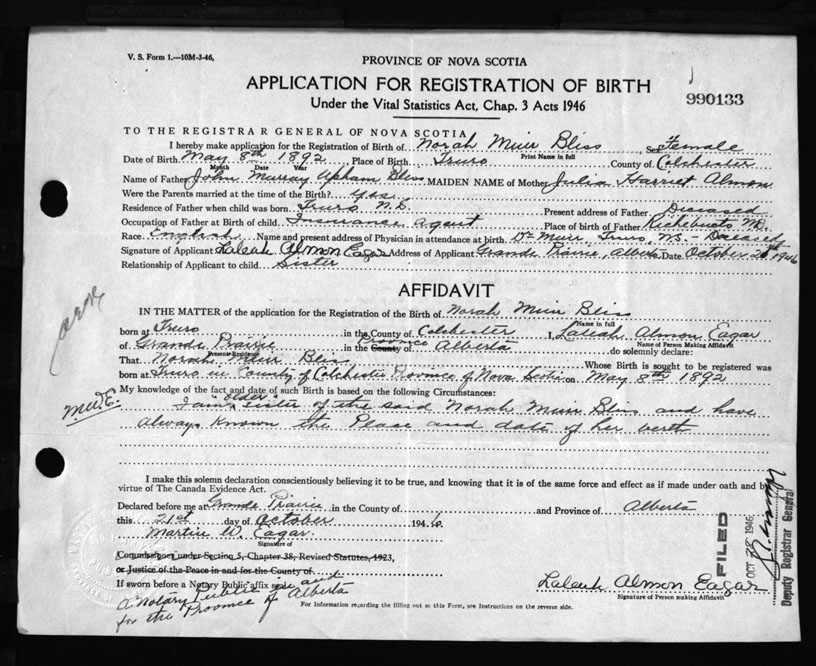 V. S. Form 1.—10M-3-46,
PROVINCE OF NOVA SCOTIA
APPLICATION FOR REGISTRATION OF BIRTH
Under the Vital Statistics Act, Chap. 3 Acts 1946
990133
TO THE REGISTRAR GENERAL OF NOVA SCOTIA
I hereby make application for the Registration of Birth of Norah Muir Bliss Sex Female
Print Name in full
Date of Birth May 8th 1892 Place of Birth Truro County of Colchester
Month Date Year
Name of Father John Murray Upham Bliss MAIDEN NAME of Mother Julia Harriet Almon
Were the Parents married at the time of the Birth? Yes
Residence of Father when child was born Truro N.S. Present address of Father Deceased
Occupation of Father at Birth of child Insurance agent Place of birth of Father Richibucto
Race English Name and present address of Physician in attendance at birth Dr Muir Truro, N.S. Deceased
Signature of Applicant Laleah Almon Eagar Address of Applicant Grande Prairie, Alberta Date October 21st 1946
Relationship of Applicant to child Sister
AFFIDAVIT
IN THE MATTER of the application for Registration of the Birth of Norah Muir Bliss
Name in full
born at Truro in the County of Colchester I, Laleah Almon Eagar
Name of Person Making Affidavit
of Grande Prairie in the County Province of Alberta do solemnly declare:
Present Residence
That Norah Muir Bliss Whose Birth is sought to be registered was
born at Truro in County of Colchester Province of Nova Scotia on May 8th 1892
My knowledge of the fact and date of such Birth is based on the following Circumstances:
M.W.E.
I am "older" sister of the said Norah Muir Bliss and have
always known the Place and date of her berth
I make this solemn declaration conscientiously believing it to be true, and knowing that it is of the same force and effect as if made under oath and by
virtue of The Canada Evidence Act.
Declared before me at Grande Prairie in the County of and Province of Alberta
this 21st day of October 1946.
Martin W. Eagar
Signature of
Commissioner under Section 5, Chapter 38, Revised Statutes, 1923,
or Justice of the Peace in and for the County of
If sworn before a Notary Public affix seal
a Notary Public in and
for the Province of Alberta
For Information regarding the filling out of this Form, see Instructions on the reverse side.
Laleah Almon Eagar
Signature of Person making Affidavit
FILED
OCT 28 1946
Deputy Registrar General